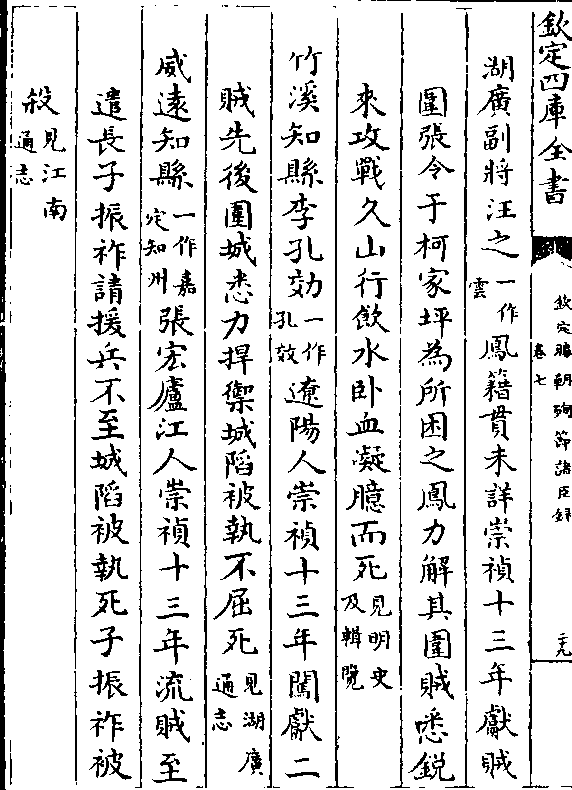 欽定四庫全書
欽定勝朝殉節諸臣録
卷七
二九
湖廣副將汪之一作雲鳳籍貫未詳崇禎十三年獻賊
圍張令于柯家坪為所困之鳳力解其圍賊悉鋭
來攻戰久山行飲水卧血凝臆而死見明史及輯覽
竹溪知縣李孔効一作孔效遼陽人崇禎十三年闖獻二
賊先後圍城悉力捍禦城陷被執不屈死見湖廣通志
威遠知縣一作嘉定知州張宏廬江人崇禎十三年流賊至
遣長子振祚請援兵不至城陷被執死子振祚被
殺見江南通志